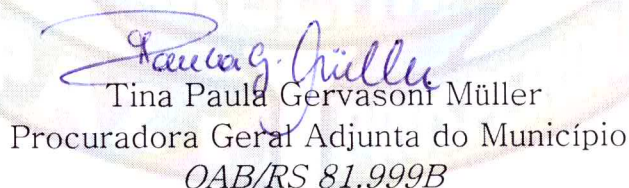 Paula G. Müller
Tina Paula Gervasoni Müller
Procuradora Geral Adjunta do Município
OAB/RS 81.999B